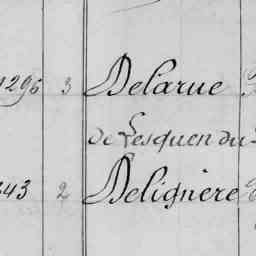 1296 3 Delarue
de Lesquen du
343 2 Delignère